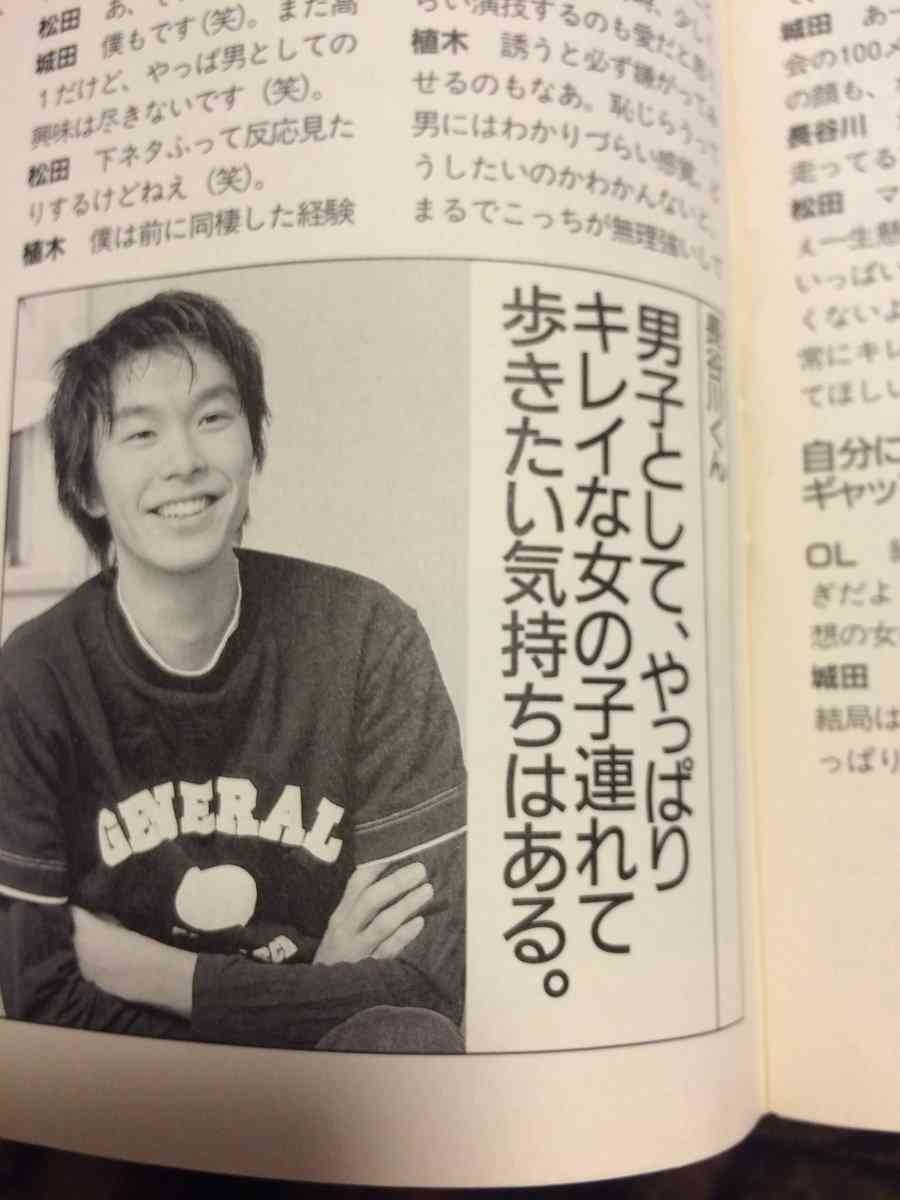 松田　あ、
城田　僕もです（笑）。まだ高
1だけど、やっぱ男としての
興味は尽きないです（笑）。
松田　下ネタふって反応見た
りするけどねえ（笑）。
植木　僕は前に同棲した経験
らい演技するのも愛だと思
植木　誘うと必ず嫌がってみ
せるのもなあ。恥じらうって
男にはわかりづらい感覚。ど
うしたいのかわかんないと、
まるでこっちが無理強いして
長谷川くん
男子として、やっぱり
キレイな女の子連れて
歩きたい気持ちはある。
GENERAL
城田　あー
会の100メ
の顔も、
長谷川
走ってる
松田　マ
ぇ一生懸
いっぱい
くないよ
常にキレ
てほしい
自分に
ギャッ
OL
ぎだよ
想の女
城田
結局は
っぱり